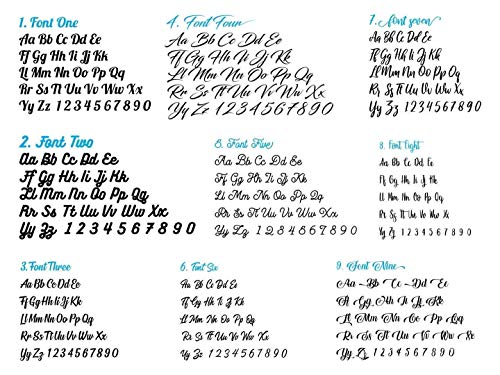 1. Font One
Aa Bb Cc Dd Ee
Ff Gg Hh Ii Jj Kk
Ll Mm Nn Oo Pp Qq
Rr Ss Tt Uu Vv Ww Xx
Yy Zz 1 2 3 4 5 6 7 8 9 0
2. Font Two
Aa Bb Cc Dd Ee
Ff Gg Hh Ii Jj Kk
Ll Mm Nn Oo Pp Qq
Rr Ss Tt Uu Vv Ww Xx
Yy Zz 1 2 3 4 5 6 7 8 9 0
3. Font Three
Aa Bb Cc Dd Ee
Ff Gg Hh Ii Jj Kk
Ll Mm Nn Oo Pp Qq
Rr Ss Tt Uu Vv Ww Xx
Yy Zz 1 2 3 4 5 6 7 8 9 0
4. Font Four
Aa Bb Cc Dd Ee
Ff Gg Hh Ii Jj Kk
Ll Mm Nn Oo Pp Qq
Rr Ss Tt Uu Vv Ww Xx
Yy Zz 1 2 3 4 5 6 7 8 9 0
5. Font Five
Aa Bb Cc Dd Ee
Ff Gg Hh Ii Jj Kk
Ll Mm Nn Oo Pp Qq
Rr Ss Tt Uu Vv Ww Xx
Yy Zz 1 2 3 4 5 6 7 8 9 0
6. Font Six
Aa Bb Cc Dd Ee
Ff Gg Hh Ii Jj Kk
Ll Mm Nn Oo Pp Qq
Rr Ss Tt Uu Vv Ww Xx
Yy Zz 1 2 3 4 5 6 7 8 9 0
7. Font seven
Aa Bb Cc Dd Ee
Ff Gg Hh Ii Jj Kk
Ll Mm Nn Oo Pp Qq
Rr Ss Tt Uu Vv Ww Xx
Yy Zz 1 2 3 4 5 6 7 8 9 0
8. Font Eight
Aa Bb Cc Dd Ee
Ff Gg Hh Ii Jj Kk
Ll Mm Nn Oo Pp Qq
Rr Ss Tt Uu Vv Ww Xx
Yy Zz 1 2 3 4 5 6 7 8 9 0
9. Font Nine
Aa Bb Cc Dd Ee
Ff Gg Hh Ii Jj Kk
Ll Mm Nn Oo Pp Qq
Rr Ss Tt Uu Vv Ww Xx
Yy Zz 1 2 3 4 5 6 7 8 9 0